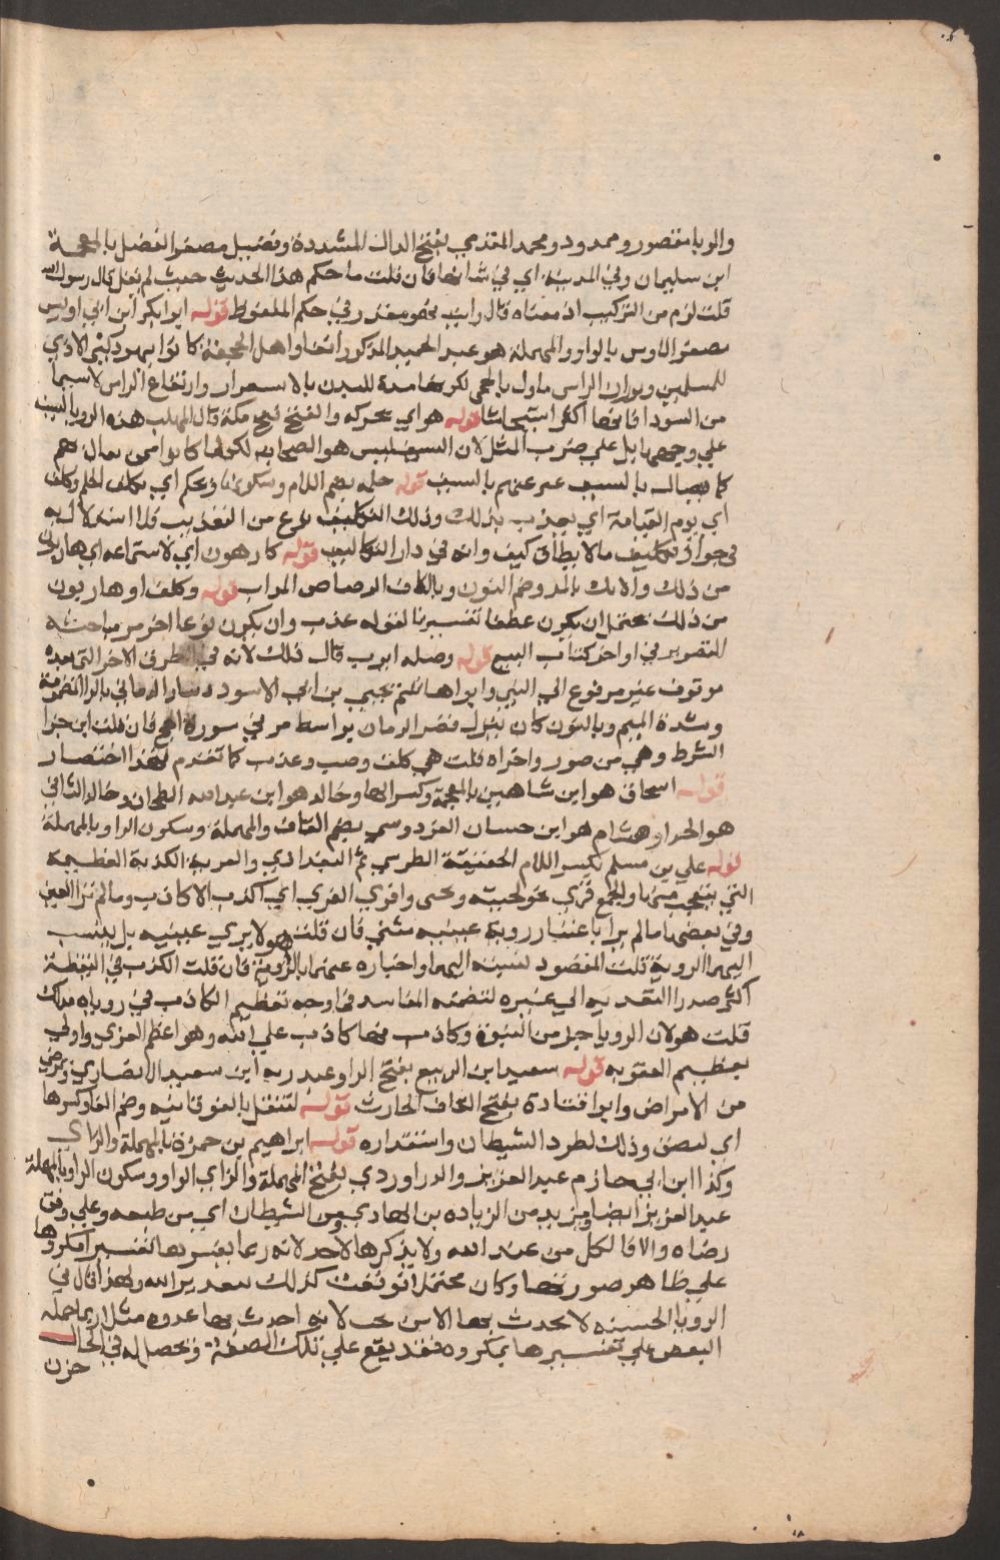 والوبا مقصور وممدود ومحمد المقدمي بفتح الدال المشددة وفضيل مصغر الفضل بالمعجمة
ابن سليمان وفي المدينة اي في شانها فان قلت ما حكم هذا الحديث حيث لم يقل قال رسول الله
قلت لزم من التركيب اذ معناه قال رايت فهو مقدر في حكم الملفوظ قوله ابو بكر ابن ابي اويس
مصغر الاوس بالواو والمهملة هو عبد الحميد المذكور انفا واهل الجحفة كانوا يهود كثير الاذي
للمسلمين وثوران الراس ماول بالحمي لكونها مدة للبدن بالاسعرار وارتفاع الراس لاسيما
من السودا فانها اكثر استيحاشا قوله هواي بحركه والفتح فتح مكة قال المهلب هذه الرويا ليست
علي وجهها بل علي ضرب المثل لان السيف ليس هو الصحابه لكنهم لما كانوا ممن يصال بهم
كما يصال بالسيف عبر عنهم بالسيف قوله حلم بضم اللام وسكونها وتحكم اي تكلف الحلم وكلف
اي يوم القيامة اي يعذب بذلك وذلك التكليف نوع من التعذيب فلا استدلال به
في جواز تكليف ما لا يطاق كيف وانه في دار التكاليف قوله كارهون اي لاستماعه اي هاربون
من ذلك والانك بالمد وضم النون وبالكاف الرصاص المذاب قوله وكلف او هاربون
من ذلك يحتمل ان يكون عطفا تفسيريا لقوله عذب وان يكون نوعا اخر مر مباحثه
التصوير في اواخر كتاب البيع قوله وصله ايوب قال ذلك لانه في الطرق الاخر التي بعده
موقوف غير مرفوع الي النبي وابو اهاشم يحيي بن ابي الاسود دينار الرماني بالراء المضمومة
وشدة الميم وبالنون كان ينزل قصر الرمان بواسط مر في سورة الحج فان قلت اين جزا
الشرط وهي من صور واخواه قلت هي كلف وصب وعذب كما تقدم لهذا اختصار
قوله اسحاق هو ابن شاهين بالمعجمة وكسر الها وخالد هو ابن عبد الله الطحان وخالد الثاني
هو الحذاء وهشام هو ابن حسان القردوسي بضم القاف والمهملة وسكون الراو بالمهملة
قوله علي بن مسلم بكسر اللام الخفيفة الطوسي ثم البغدادي والفرية الكذبة العظيمة
التي يتعجب منها والجمع فري نحو لحية ولحي وافري الفري اي اكذب الاكاذيب وما لم تر العين
وفي بعضها ما لم يرا باعتبار روية عينيه مثني فان قلت هو لا يري عينيه بل ينسب
اليهما الروية قلت المقصود نسبة اليهما واخباره عنهما بالروية فان قلت الكذب في اليقظة
اكثر ضررا لتعديه الي غيره لتضمنه المفاسد فما وجه تعظيم الكاذب في روياه بذلك
قلت هو لان الرويا جزء من النبوة وكاذب فيها كاذب علي الله وهو اعظم الفري واولي
بعظيم العقوبه قوله سعيد ابن الربيع بفتح الراو عبد ربه ابن سعيد الانصاري وتمرضني
من الامراض وابو قتادة بفتح القاف الحارث قوله لتتفل بالفوقانيه وضم الفا وكسرها
اي لبصق وذلك لطرد الشيطان واستقذاره قوله ابراهيم بن حمزة بالمهملة والزاي
وكذا ابن ابي حازم عبد العزيز والدراوردي بفتح المهملة والراي الواو وسكون الراو بالمهملة
عبد العزيز ايضا ومزيد من الزياده بن الهادي ومن الشيطان اي من طبعه وعلي وفق
رضاه والا فالكل من عند الله ولا يذكرها لاحد لانه ربما يفسرها تفسيرا مكروها
علي ظاهر صورتها وكان محتملا فوقعت كذلك بتقدير الله ولهذا قال في
الرويا الحسنه لا يحدث بها الا من يحب لانه احدث بها عدوه مثلا ربما حمله
البعض علي تفسيرها بمكروه فقد يقع علي تلك الصفة ويحصل له في الحال
حزن